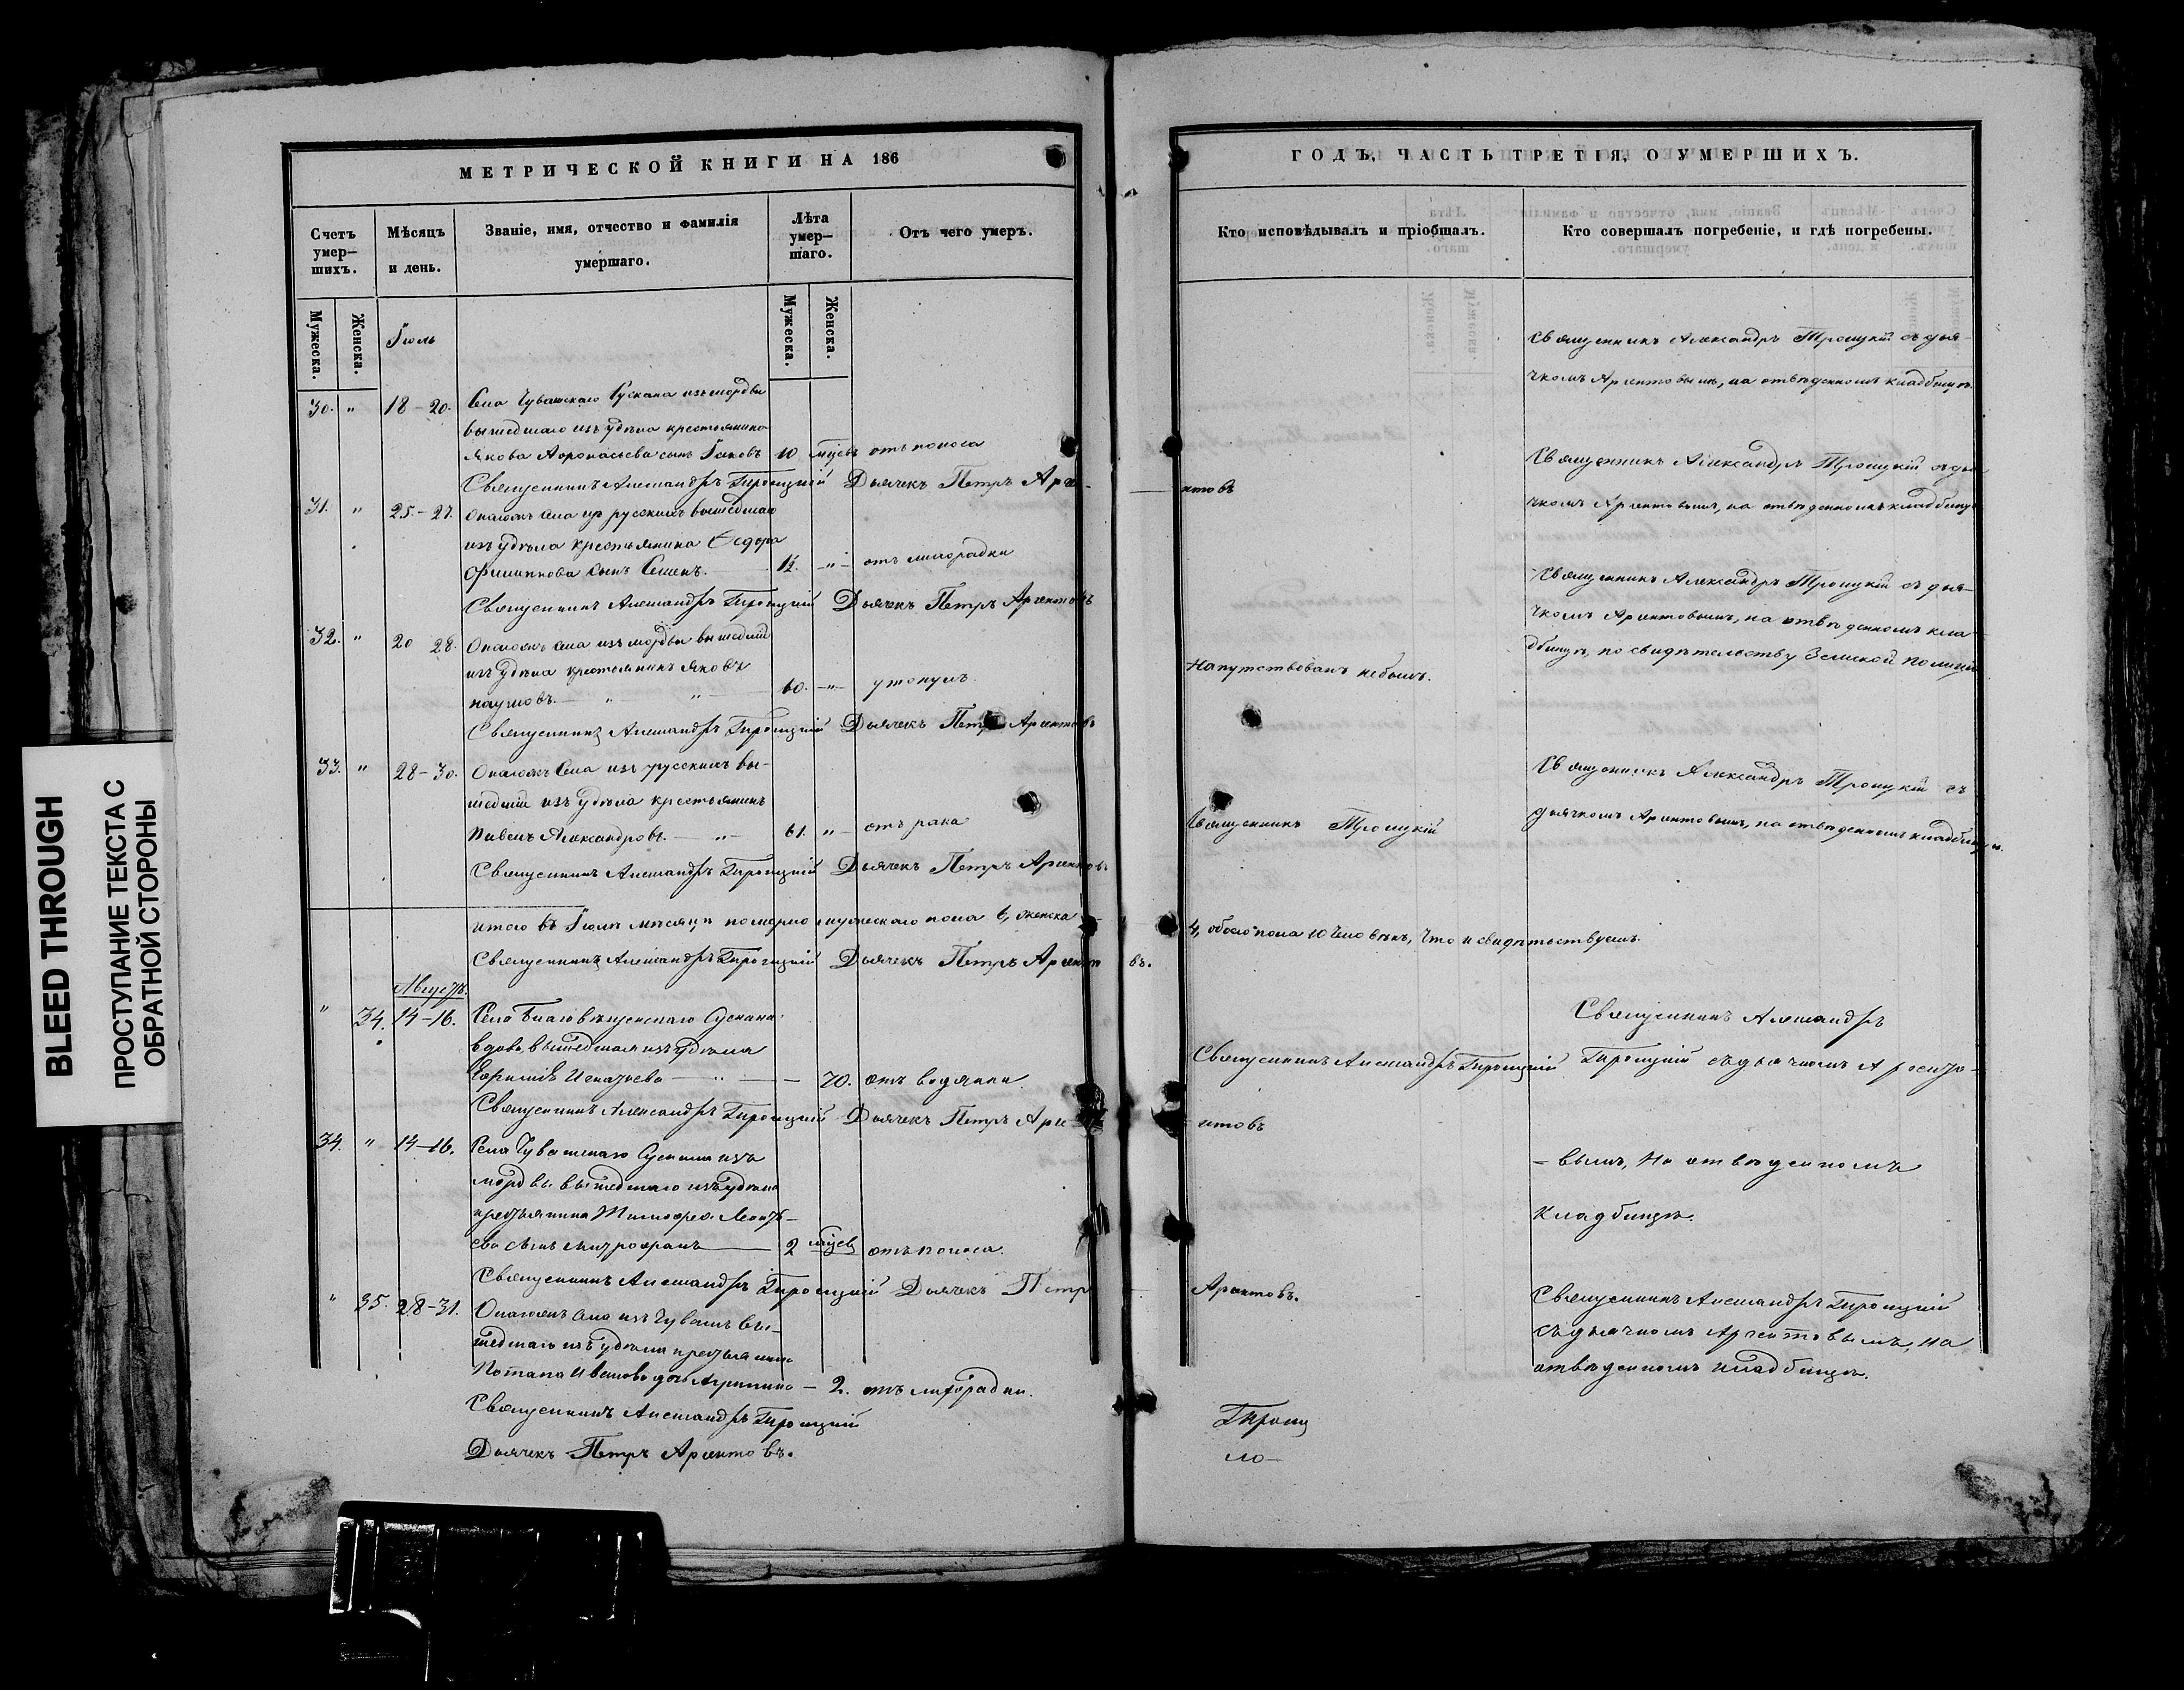 BLEED THROUGH
ПРОСТУПАНИЕ ТЕКСТА С
ОБРАТНОЙ СТОРОНЫ
МЕТРИЧЕСКОЙ КНИГИ НА 186
Счетъ умер-шихъ.
Мѣсяцъ и день.
Званіе, имя, отчество и фамилія умершаго.
Лѣта умер-шаго.
Отъ чего умеръ.
Мужеска.
Женска.
Мужеска.
Женска.
Іюль
30. " 18-20. Села Чувашскаго Сускана изъ мордвы
вышедшаго изъ удѣла крестьянина
Якова Афонасьева сынъ Іаковъ 10 мцевъ отъ поноса
Священникъ Александръ Троицкій Дьячекъ Петръ Арен-
31. " 25-27. Онагожъ села из русскихъ вышедшаго
изъ удѣла крестьянина Ѳедора
Филиппова сынъ Семенъ. 1½. -"- отъ лихорадки
Священникъ Александръ Троицкій Дьячекъ Петръ Арентовъ
32. " 20 28. Онагожъ села изъ мордвы вышедшій
изъ удѣла крестьянинъ Яковъ
Наумовъ. " " 60. -"- утонулъ.
Священникъ Александръ Троицкій Дьячекъ Петръ Арентовъ
33. " 28-30. Онагожъ села изъ русскихъ вы-
шедшій изъ удѣла крестьянинъ
Павелъ Александровъ. -"- 61. "- отъ рака
Священникъ Александръ Троицкій Дьячекъ Петръ Арентовъ
итого въ Іюлѣ мѣсяцѣ померло мужескаго пола 6, женска
Священникъ Александръ Троицкій Дьячекъ Петръ Аренто
Августъ.
" 34. 14-16. Села Благовѣщенскаго Сускана
вдова, вышедшая изъ удѣла
Игнатьева " - 70. отъ водянки
Священникъ Александръ Троицкій Дьячекъ Петръ Арен
34. " 14-16. Села Чувашскаго Сускана изъ
мордвы вышедшаго изъ удѣла
крестьянина Тимофея Леонть-
ева сынъ Митрофанъ 2 мцевъ отъ поноса.
Священникъ Александръ Троицкій Дьячекъ Петр
" 35. 28-31. Онагожъ села изъ Чувашъ вы-
шедшаго изъ удѣла крестьянина
Потапа Иванова дочь Агрипина - 2. отъ лихорадки.
Священникъ Александръ Троицкій
Дьячекъ Петръ Арентовъ.
ГОДЪ, ЧАСТЬ ТРЕТІЯ, О УМЕРШИХЪ.
Кто исповѣдывалъ и пріобщалъ.
Кто совершалъ погребеніе, и гдѣ погребены.
Священникъ Александръ Троицкій съ дья-
чкомъ Арентовымъ, на отвѣденномъ кладбищѣ.
Священникъ Александръ Троицкій съ дья
нтовъ
чкомъ Арентовымъ, на отвѣденномъ кладбищѣ
Священникъ Александръ Троицкій съ дья-
чкомъ Арентовымъ, на отвѣденномъ кла
дбищѣ, по свидѣтельству Земской полиціи
Напутствованъ небылъ.
Священникъ Александръ Троицкій съ
Священникъ Троицкій
дьячкомъ Арентовымъ, на отвѣденномъ кладбищѣ.
4, обоего пола 10 человѣкъ, что и свидѣтельствуемъ.
въ.
Священникъ Александръ
Священникъ Александръ Троицкій
Троицкій съ дьячкомъ Аренто-
нтовъ
-вымъ, на отвѣденномъ
кладбищѣ.
Арентовъ.
Священникъ Александръ Троицкій
съ дьячкомъ Арентовымъ, на
отвѣденномъ кладбищѣ.
Троиц
ло-